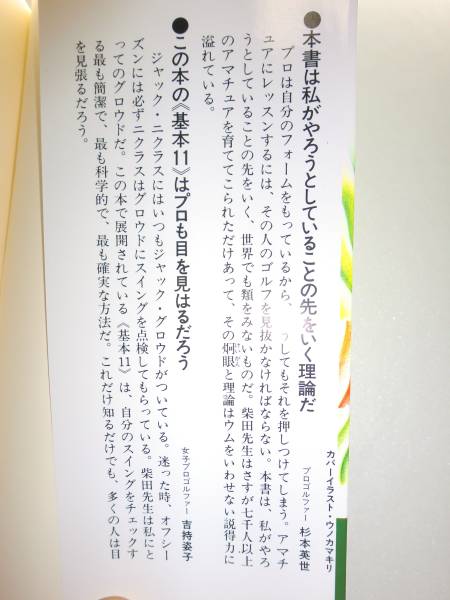 ●本書は私がやろうとしていることの先をいく理論だ
プロゴルファー 杉本英世
プロは自分のフォームをもっているから、うしてもそれを押しつけてしまう。アマチ
ュアにレッスンするには、その人のゴルフを見抜かなければならない。本書は、私がやろ
うとしていることの先をいく、世界でも類をみないものだ。柴田先生はさすが七千人以上
のアマチュアを育ててこられただけあって、その炯眼と理論はウムをいわせない説得力に
溢れている。
●この本の《基本11》はプロも目を見はるだろう
女子プロゴルファー 吉持姿子
ジャック・ニクラスにはいつもジャック・グロウドがついている。迷った時、オフシー
ズンには必ずニクラスはグロウドにスイングを点検してもらっている。柴田先生は私にと
ってのグロウドだ。この本で展開されている《基本11》は、自分のスイングをチェックす
る最も簡潔で、最も科学的で、最も確実な方法だ。これだけ知るだけでも、多くの人は目
を見張るだろう。
カバーイラスト・ウノカマキリ